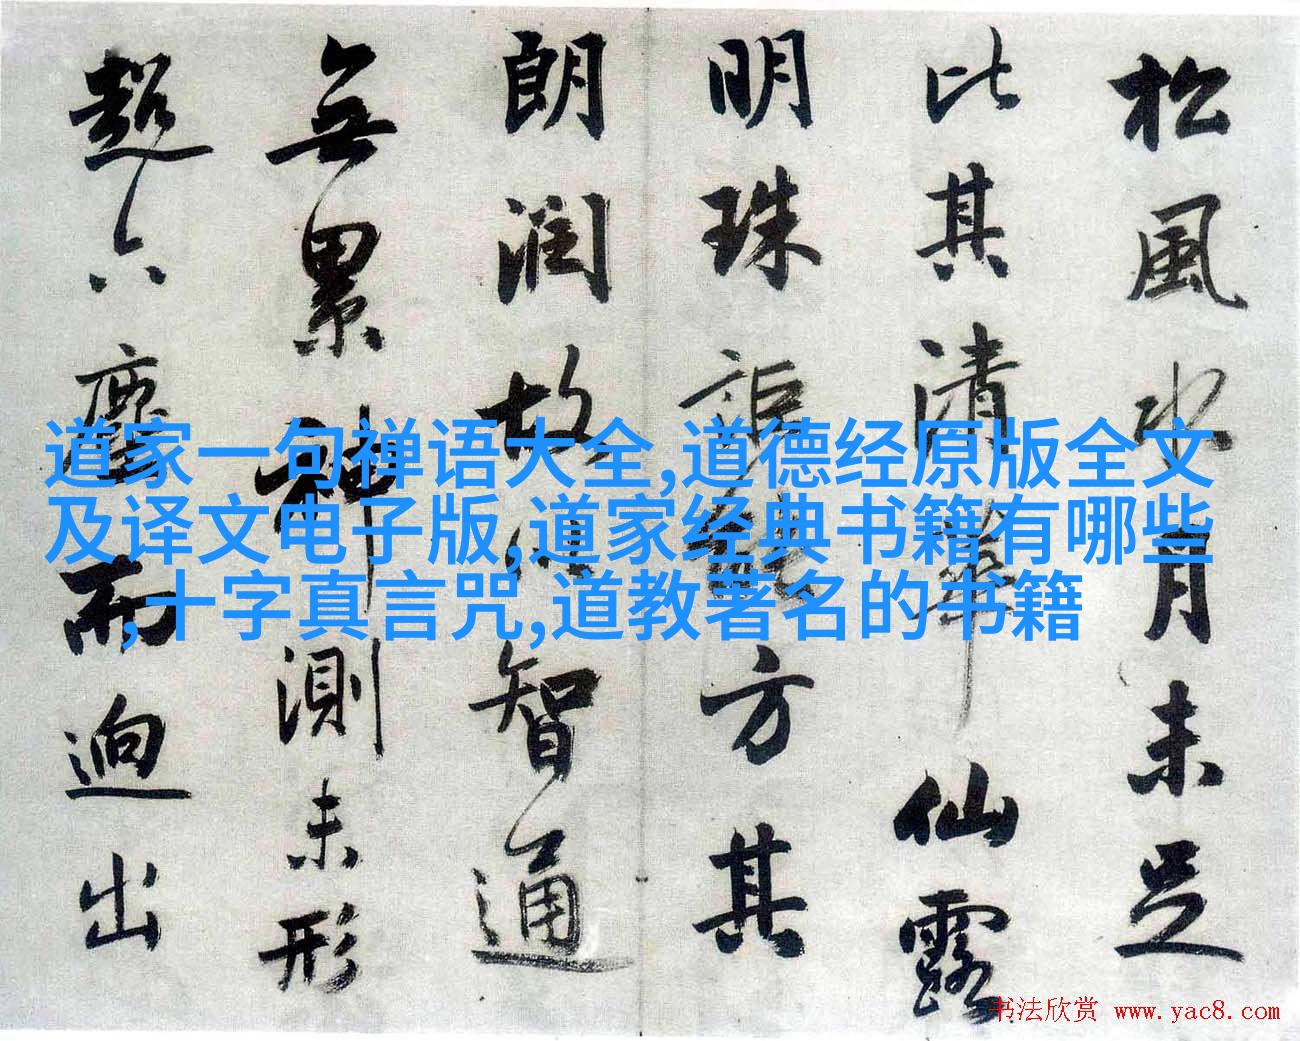 松風水月未足
比其清華仙露
明珠詎能方其
朗潤故以智通
無累神測未形
超六塵而迥出
道家一句禅语大全,道德经原版全文
及译文电子版,道家经典书籍有哪些
,十字真言咒,道教著名的书籍
书法欣赏 www.yac8.com